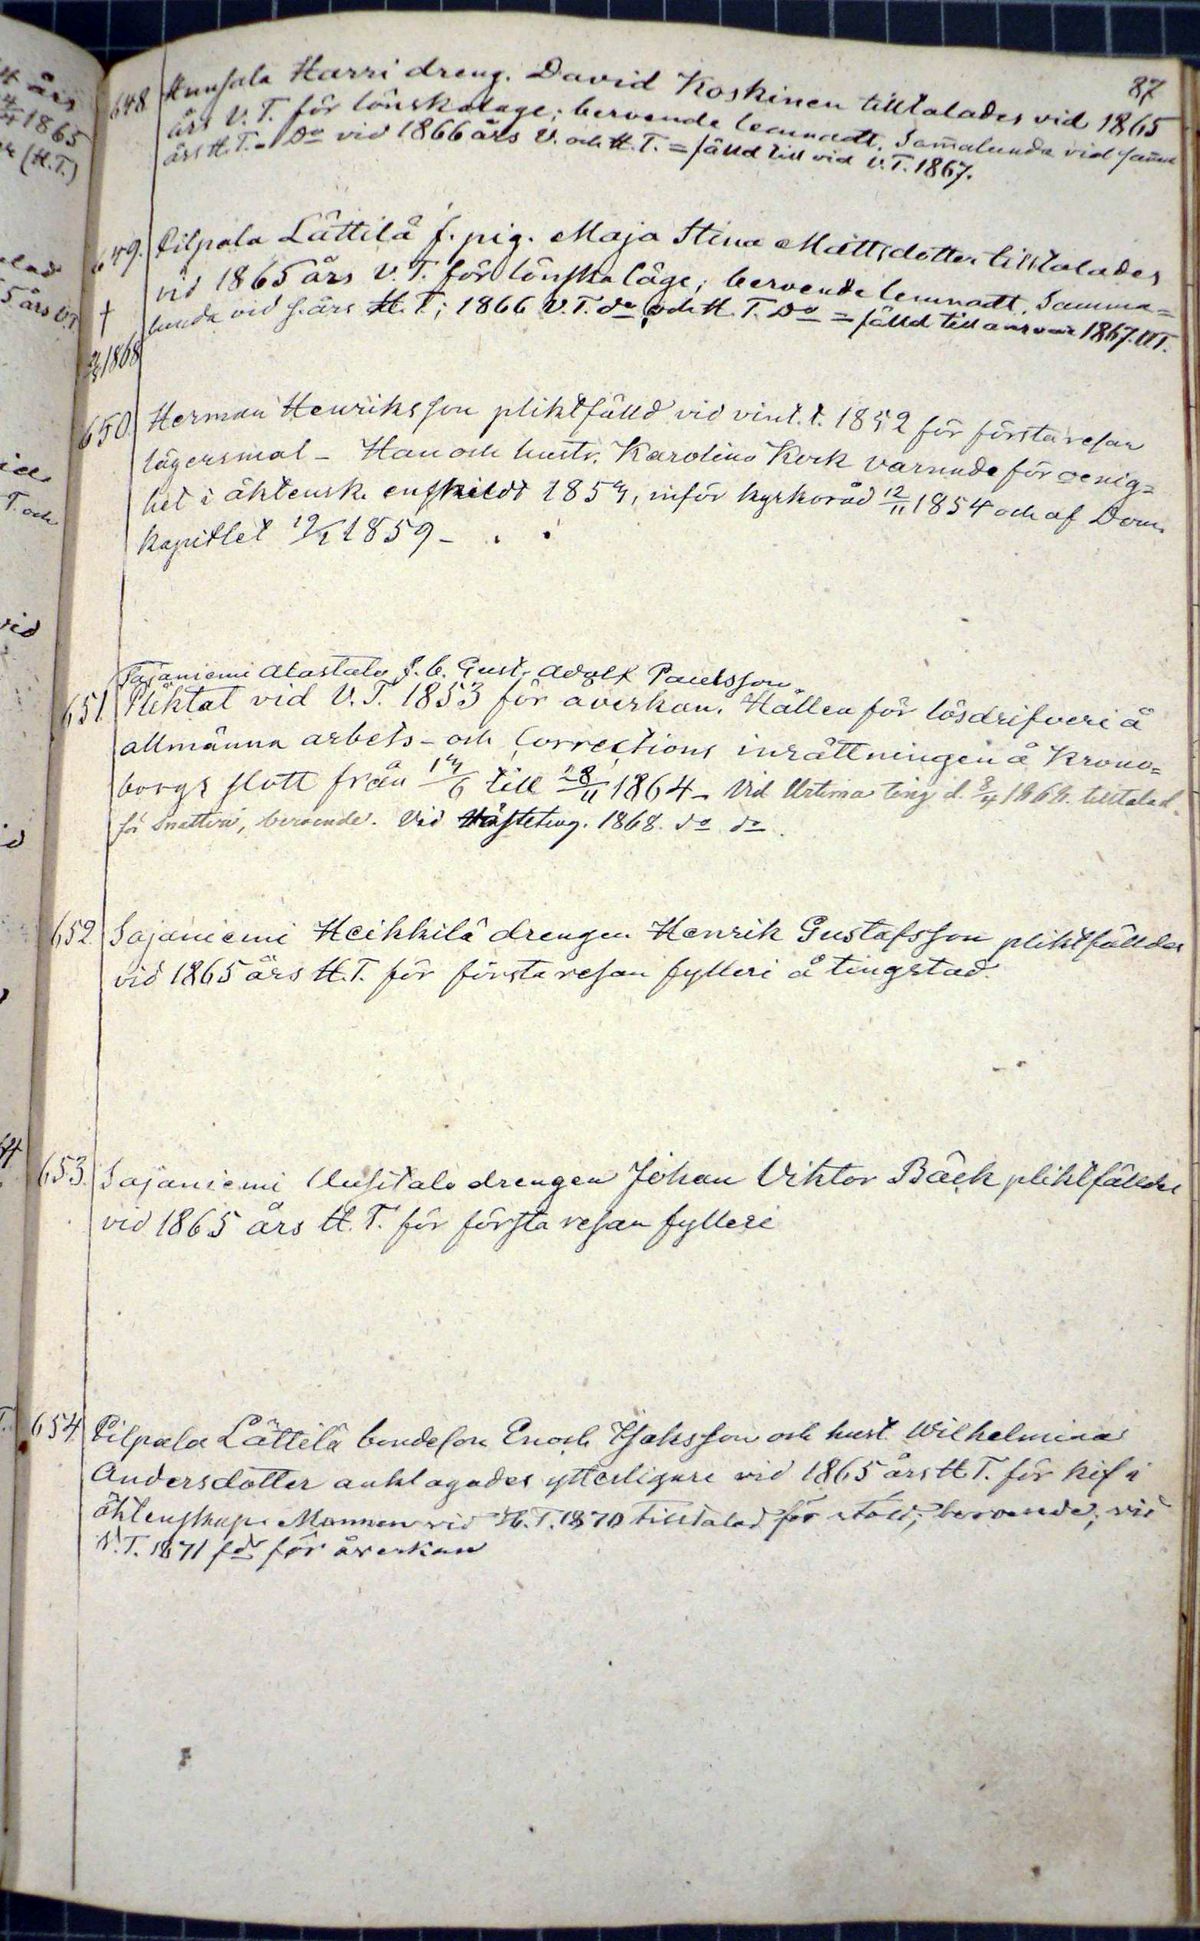 87
648. Hunsala Harri dreng. David Koskinen tilltalades vid 1865
års V. T. för lönskaläge; beroende lemnadt. Sam̄alunda vid sam̄a
års H.T. - Do vid 1866 års V. och H.T. = fälld till vid V.T. 1867.
649. Pilpala Lättilä f. pig. Maja Stina Mattsdotter tilltalades
vid 1865 års V. T. för lönskaläge; beroende lemnadt. Samma=
lunda vid s. års H. T; 1866 V.T. do och H. T. Do = fälld till ansvar 1867. VT.
†
1868
650. Herman Henriksson pliktfälld vid vint. t. 1852 för första resan
lägersmål - Han och hustr. Karolina Kock varnade för oenig=
het i äktensk. enskildt 1854, inför kyrkoråd 12/11 1854 och af Dom
kapitlet 19/1 1859 -
Sajaniemi Alastalo J. b. Gust. Adolf Paulsson
651. Pliktat vid V. T. 1853 för åverkan. Hållen för lösdrifveri å
allmänna arbets- och Corrections inrättningen å Krono=
borgs slott från 14/6 till 28/11 1864 - Vid Urtima ting d. 8/4 1868. tilltalad
för snatteri, beroende. Vid Hösteting. 1868. do do.
652. Sajaniemi Heikkilä drengen Henrik Gustafsson pliktfälldes
vid 1865 års H. T. för första resan fylleri å tingstad.
653. Sajaniemi Uusitalo drengen Johan Viktor Bäck pliktfälldes
vid 1865 års H. T. för första resan fylleri
654. Pilpala Lättilä bondeson Enoch Isaksson och hust. Wilhelmina
Andersdotter anklagades ytterligare vid 1865 års H T. för kif i
äktenskap. Mannen vid H. T. 1870 tilltalad för stöld; beroende; vid
V. T. 1871 fd för åverkan